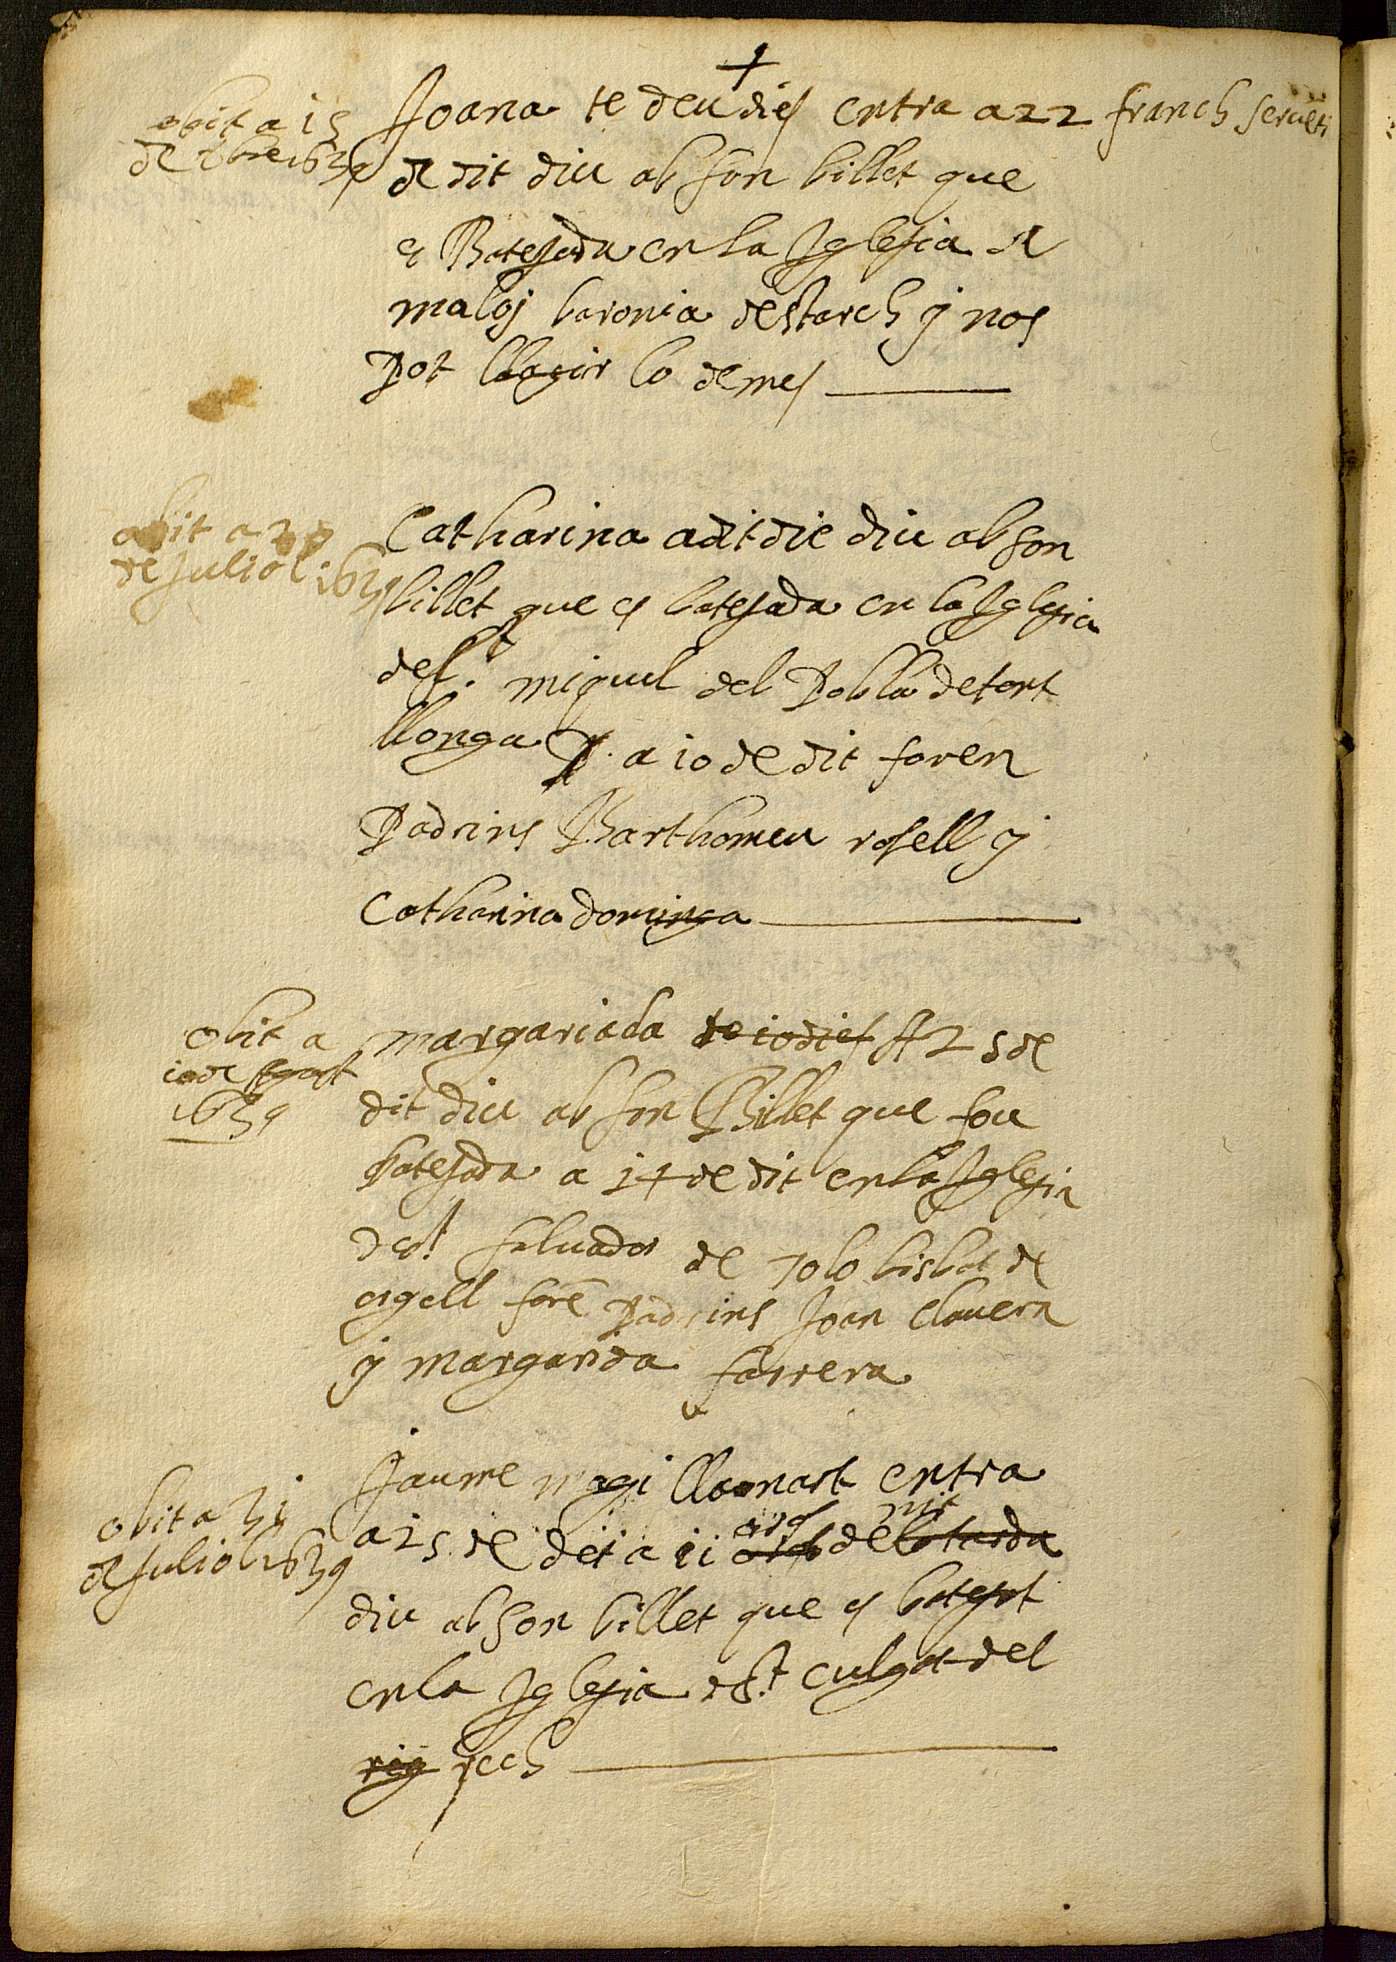 +
obit a 15
de 7bre 1639
Joana te deu dies entra a 22 franch
de dit diu ab son billet que
es Batejada en la Iglesia de
baronia destarch y nos
Pot llagir lo demes
obit a 20
de Juliol 1639
Catharina a dit die diu ab son
billet que es batejada en la Iglesia
de st. miquel del Pobla de tort
llonga P. a 10 de dit foren
Padrins Barthomeu rosell y
Catharina dominga
obit a
10 de Agost
1639
margarida te 10 dies A 25 de
dit diu ab son Billet que fou
batejada a 14 de dit en la Iglesia
de st. saluador de tolo bisbat de
orgell forē Padrins Joan Clauera
y margarida farrera
obit a 31
de Juliol 1639
Jaume magi llaonart entra
a 25 de det a 11 oras de la tarda
nit
diu ab son billet que es batejat
en la Iglesia de st. culgat del
rig rech